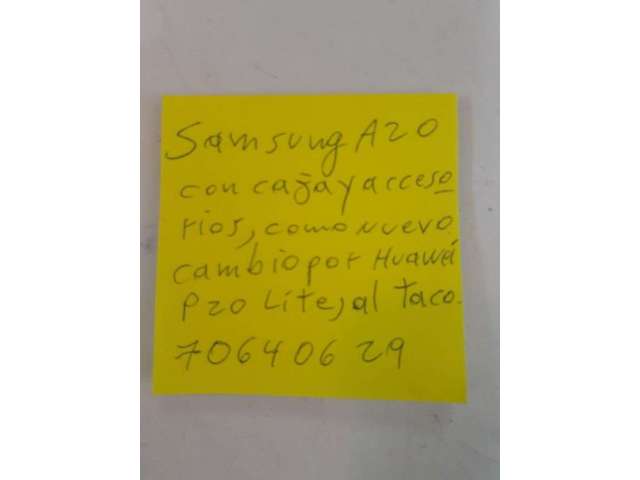 Samsung A20
con caja y acceso
rios, como nuevo
cambio por Huawei
P20 Lite, al taco.
70640629